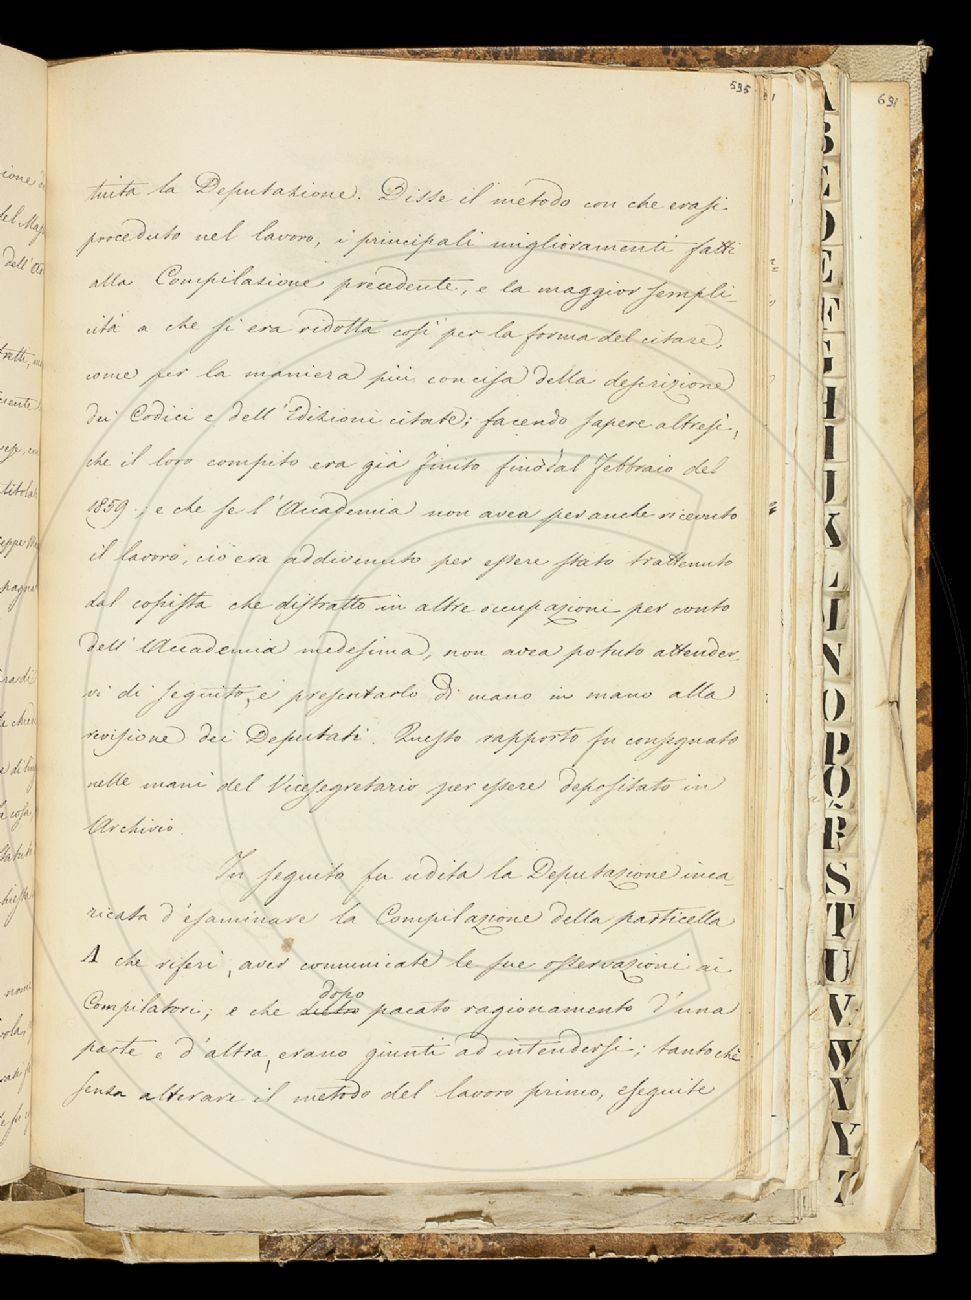 535
691
tuita la Deputazione. Disse il metodo con che erasi
proceduto nel lavoro, i principali miglioramenti fatti
alla Compilazione precedente, e la maggior sempli-
cità a che si era ridotta così per la forma del citare,
come per la maniera più concisa della descrizione
dei Codici e dell'Edizioni citate; facendo sapere altresì,
che il loro compito era già finito fino al Febbraio del
1859; e che se l'Accademia non avea per anche ricevuto
il lavoro, ciò era addivenuto per essere stato trattenuto
dal copista che distratto in altre occupazioni per conto
dell'Accademia medesima, non avea potuto attender-
vi di seguito, e presentarlo di mano in mano alla
revisione dei Deputati. Questo rapporto fu consegnato
nelle mani del Vicesegretario per essere depositato in
Archivio.
In seguito fu udita la Deputazione inca-
ricata d'esaminare la Compilazione della particella
A che riferì, aver comunicate le sue osservazioni ai
dopo
Compilatori; e che dietro pacato ragionamento d'una
parte e d'altra, erano giunti ad intendersi; tantoché
senza alterare il metodo del lavoro primo, eseguite
A
B
E
D
E
F
G
H
I
J
K
L
M
N
O
P
Q
R
S
T
U
V
W
X
Y
Z